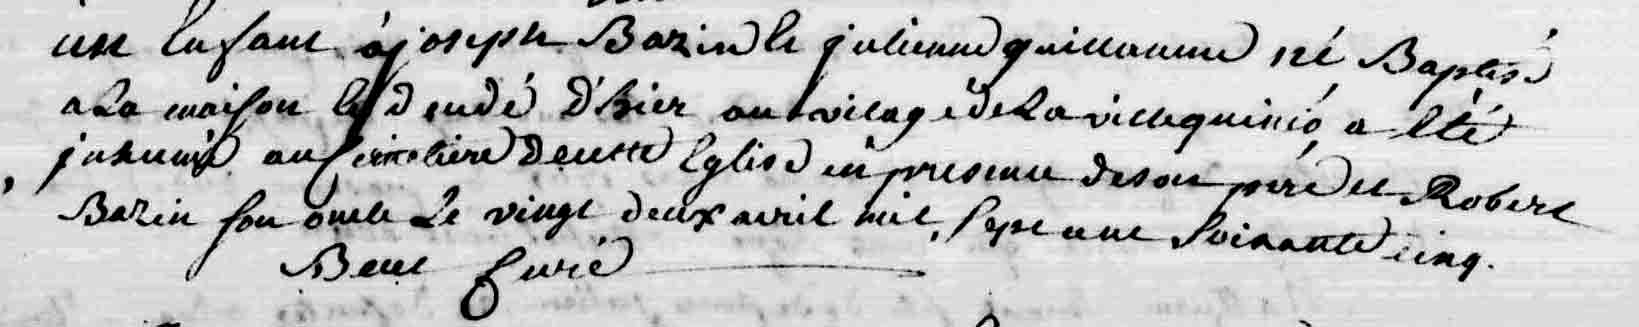 un Enfant à joseph Bazin le julienne guillaume né Baptisé
a La maison le decedé D'hier au vilage de La ville quinio, a Eté
inhumé au Cimetiere De cette Eglise en presence de son pére et Robert
Bazin son oncle Le vingt deux avril mil, sept cent soixante cinq.
curé